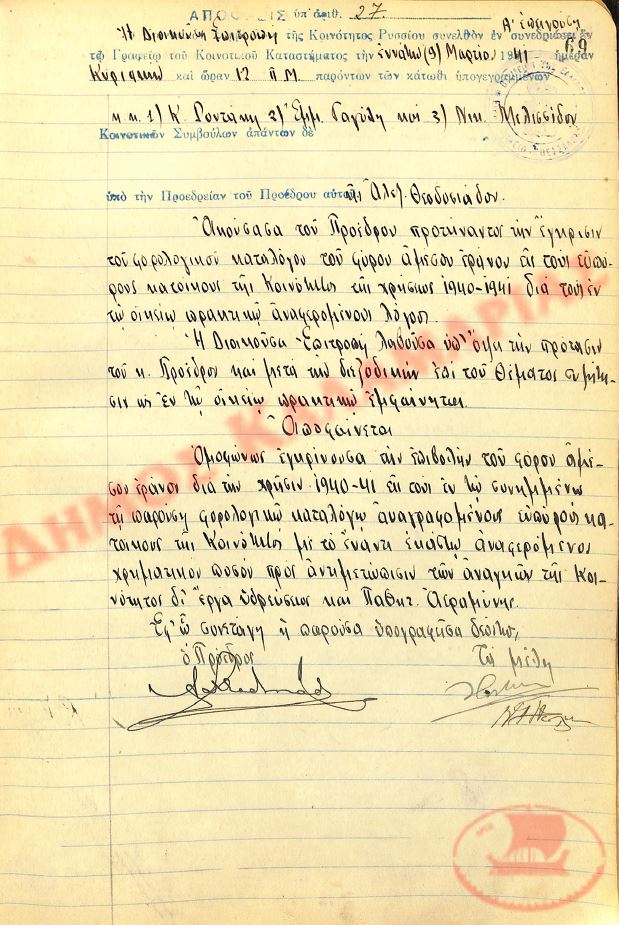 ΑΠΟΦΑΣΙΣ ὑπ' ἀριθ. 27
Α' ἐπείγουσα
69
Ἡ Διοικοῦσα Ἐπιτροπὴ τῆς Κοινότητος Ρυσσίου συνελθὸν ἐν συνεδριάσει ἐν
τῷ Γραφείῳ τοῦ Κοινοτικοῦ Καταστήματος τὴν ἐννάτην (9) Μαρτίου 1941 ἡμέραν
Κυριακὴν καὶ ὥραν 12 π.Μ. παρόντων τῶν κάτωθι ὑπογεγραμμένων
κ.κ. 1) Κ. Ροντάκη 2) Ἐμμ. Γαγύλη καὶ 3) Νικ. Μελισσίδου
Κοινοτικῶν Συμβούλων ἀπάντων δὲ
ὑπὸ τὴν Προεδρείαν τοῦ Προέδρου αὐτῆς Ἀλεξ. Θεοδοσιάδου.
Ἀκούσασα τοῦ Προέδρου προτείναντος τὴν ἔγκρισιν
τοῦ φορολογικοῦ καταλόγου τοῦ φόρου ἀμέσου ἐράνου εἰς τοὺς εὐπό-
ρους κατοίκους τῆς Κοινότητος τῆς χρήσεως 1940-1941 διὰ τοὺς ἐν
τῷ οἰκείῳ πρακτικῷ ἀναφερομένους λόγους.
Ἡ Διοικοῦσα Ἐπιτροπὴ λαβοῦσα ὑπ' ὄψει τὴν πρότασιν
τοῦ κ. Προέδρου καὶ μετὰ τὴν διεξοδικὴν ἐπὶ τοῦ θέματος συζήτη-
σιν ὡς ἐν τῷ οἰκείῳ πρακτικῷ ἐμφαίνηται.
Ἀποφαίνεται
Ὁμοφώνως ἐγκρίνουσα τὴν ἐπιβολὴν τοῦ φόρου ἀμέ-
σου ἐράνου διὰ τὴν χρῆσιν 1940-41 εἰς τοὺς ἐν τῷ συνημμένῳ
τῇ παρούσῃ φορολογικῷ καταλόγῳ ἀναγραφομένους εὐπόρους κα-
τοίκους τῆς Κοινότητος μὲ τὸ ἔναντι ἑκάστῳ ἀναφερόμενον
χρηματικὸν ποσὸν πρὸς ἀντιμετώπισιν τῶν ἀναγκῶν τῆς Κοι-
νότητος δι' ἔργα ὑδρεύσεως καὶ Παθητ. Ἀεραμύνης.
Ἐφ' ᾧ συνετάγη ἡ παροῦσα ὑπογραφεῖσα δεόντως.
ὁ Πρόεδρος Τὰ μέλη
ΔΗΜΟΣ ΚΑΛΑΜΑΡΙΑΣ